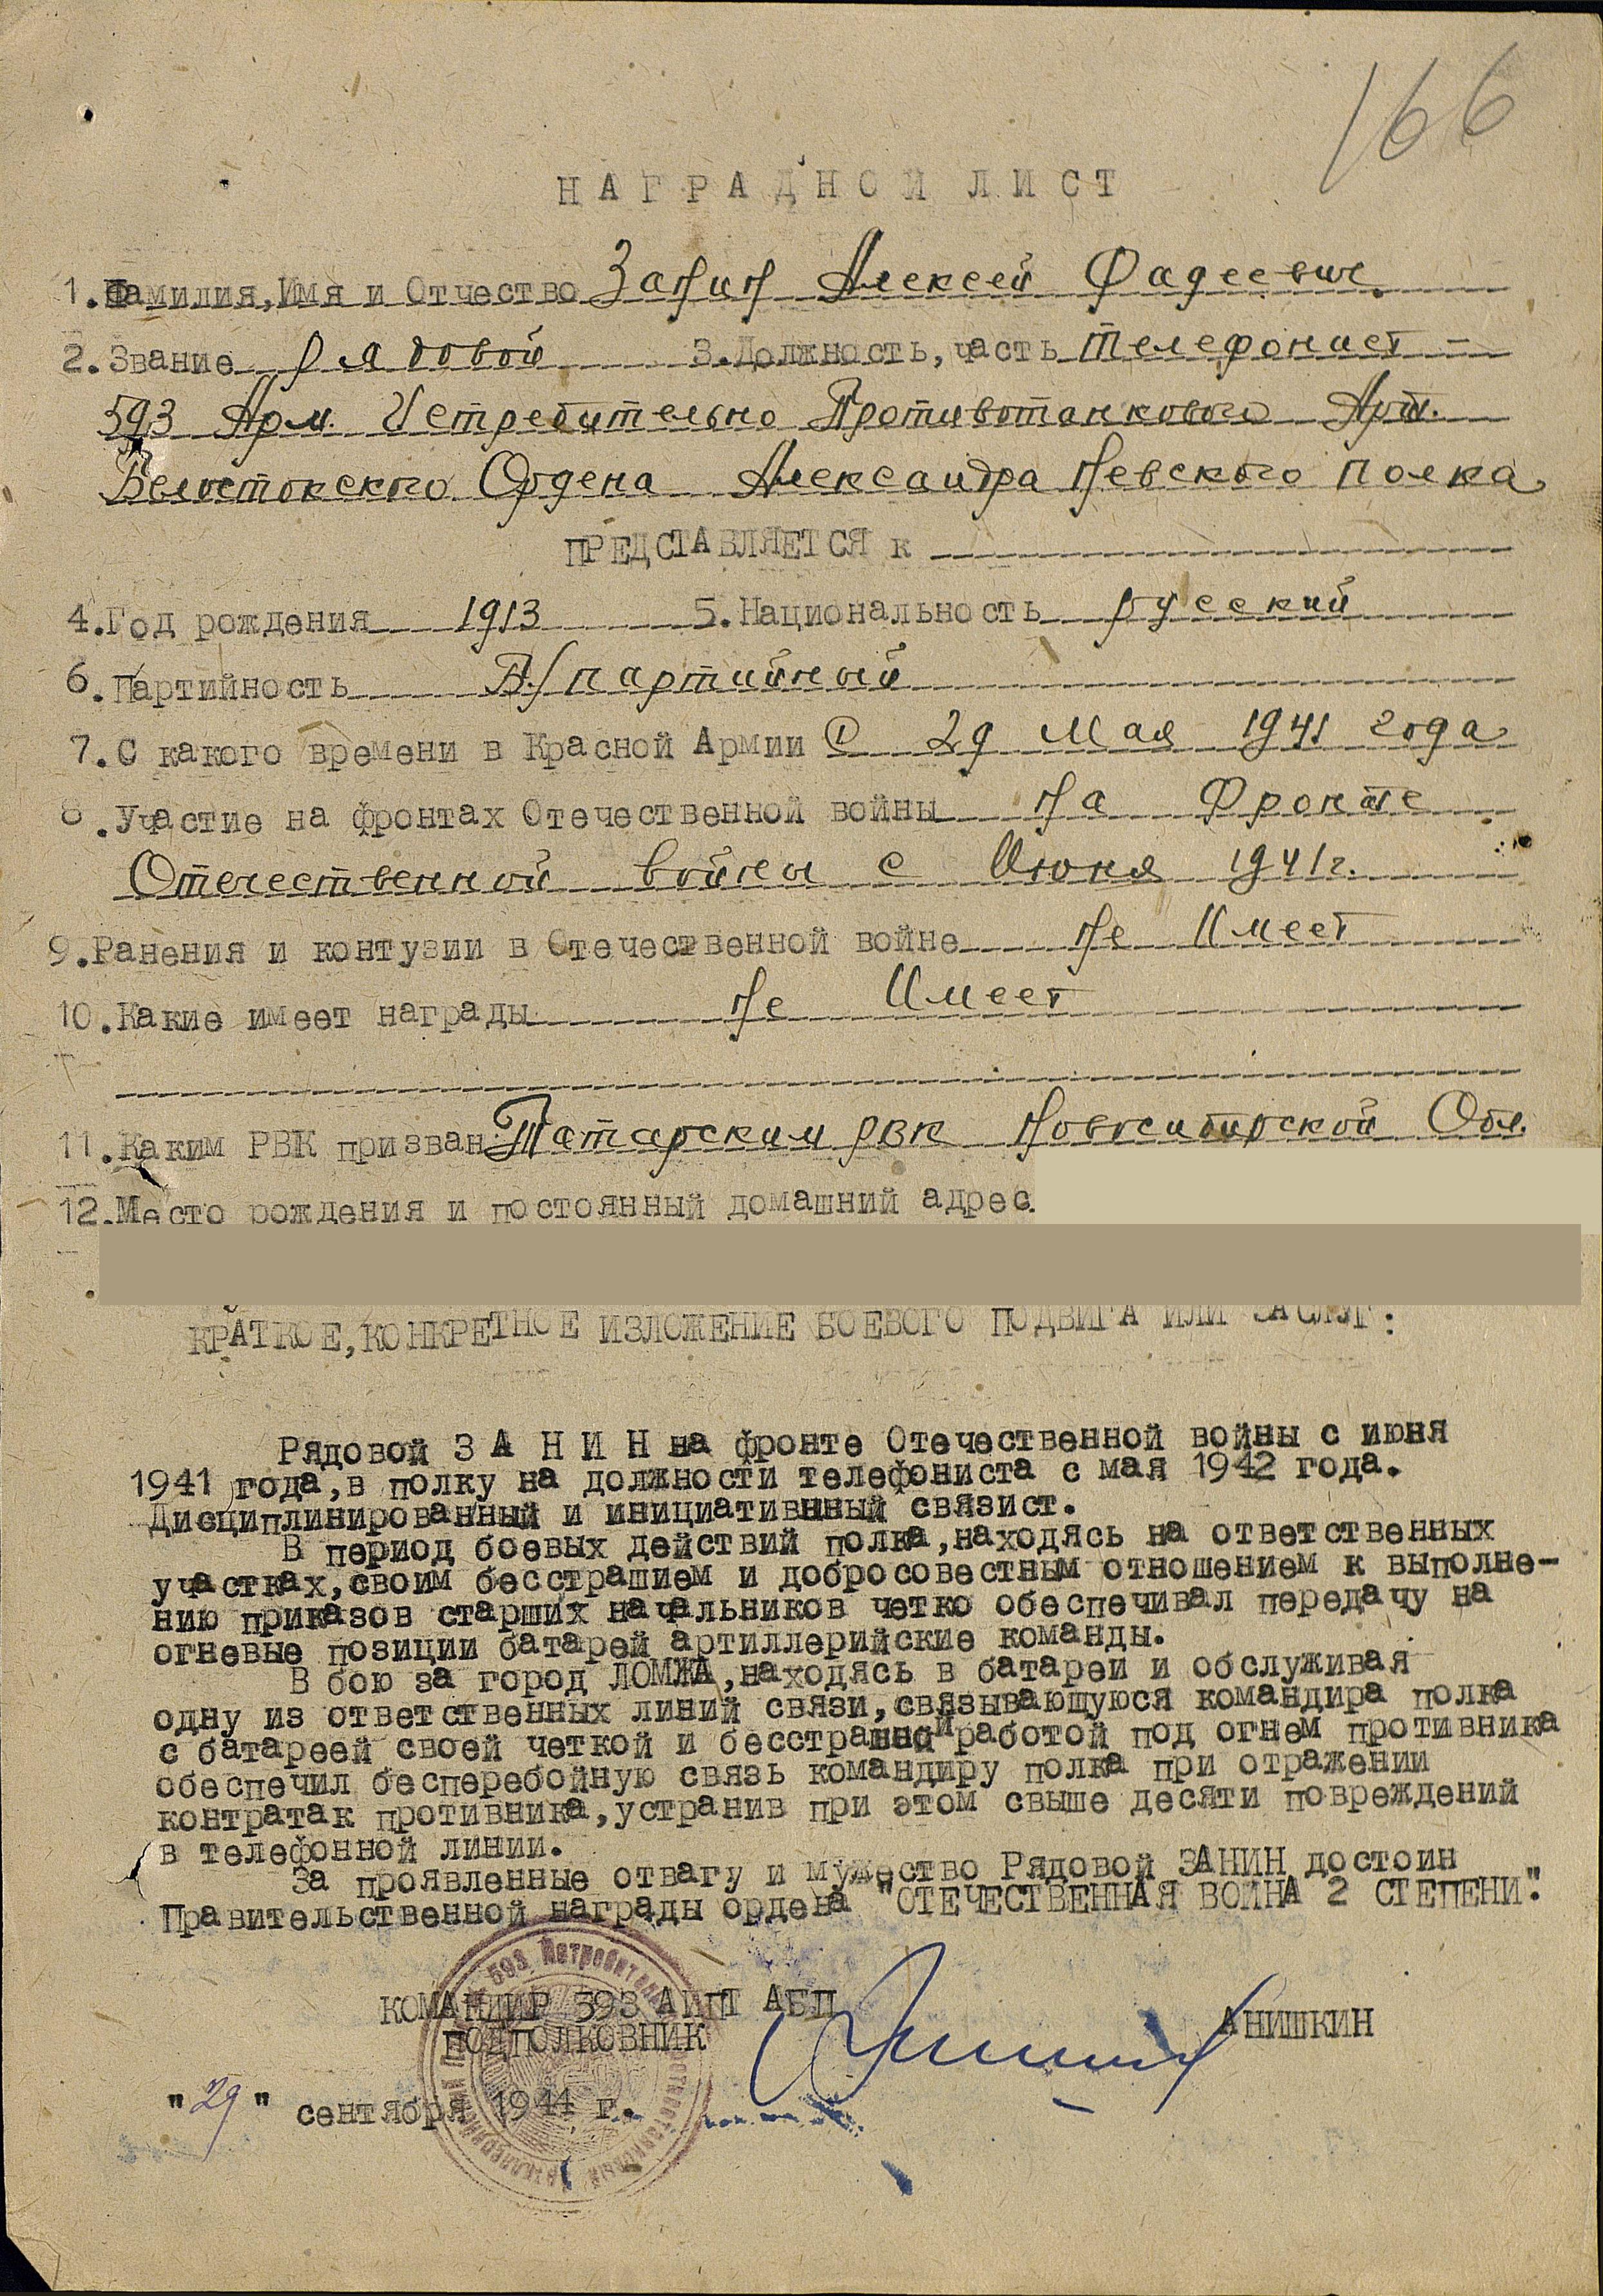 166
НАГРАДНОЙ ЛИСТ
1. Фамилия, Имя и Отчество Занин Алексей Фадеевич.
2. Звание рядовой 3. Должность, часть Телефонист –
593 Арм. Истребительно Противотанкового Арт.
Белостокского Ордена Александра Невского полка
ПРЕДСТАВЛЯЕТСЯ к
4. Год рождения 1913 5. Национальность русский
6. Партийность Б/партийный
7. С какого времени в Красной Армии С 29 Мая 1941 года
8. Участие на фронтах Отечественной войны На Фронте
Отечественной войны с Июня 1941г.
9. Ранения и контузии в Отечественной войне Не Имеет
10. Какие имеет награды Не Имеет
11. Каким РВК призван Татарским РВК Новосибирской Обл.
12. Место рождения и постоянный домашний адрес.
КРАТКОЕ, КОНКРЕТНОЕ ИЗЛОЖЕНИЕ БОЕВОГО ПОДВИГА ИЛИ ЗАСЛУГ:
Рядовой З А Н И Н на фронте Отечественной войны с июня
1941 года, в полку на должности телефониста с мая 1942 года.
Дисциплинированный и инициативнный связист.
В период боевых действий полка, находясь на ответственных
участках, своим бесстрашием и добросовестным отношением к выполне-
нию приказов старших начальников четко обеспечивал передачу на
огневые позиции батарей артиллерийские команды.
В бою за город ЛОМЖА, находясь в батареи и обслуживая
одну из ответственных линий связи, связывающуюся командира полка
с батареей своей четкой и бесстрашной работой под огнем противника
обеспечил бесперебойную связь командиру полка при отражении
контратак противника, устранив при этом свыше десяти повреждений
в телефонной линии.
За проявленные отвагу и мужество Рядовой ЗАНИН достоин
Правительственной награды ордена "ОТЕЧЕСТВЕННАЯ ВОЙНА 2 СТЕПЕНИ".
КОМАНДИР 593 АИПТ АБП
ПОДПОЛКОВНИК АНИШКИН
"29" сентября 1944 г.
593 Истребительно